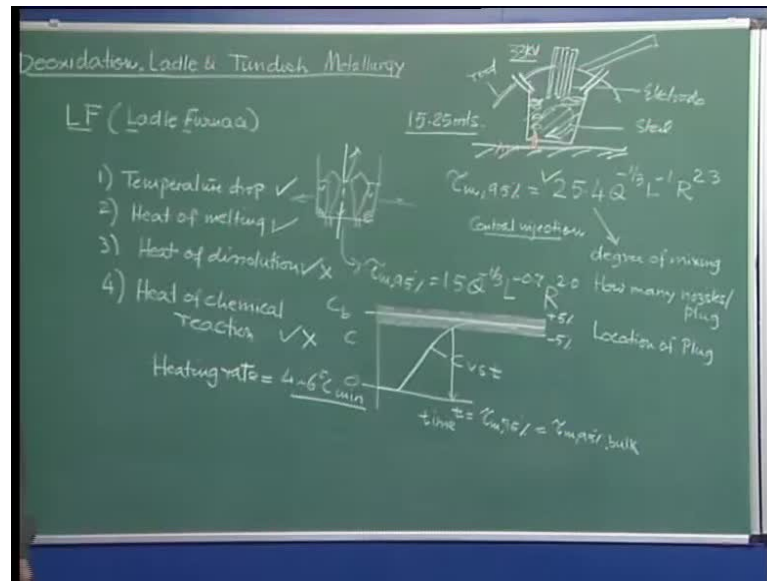 Deoxidation, Ladle & Tundish Metallurgy
LF (Ladle Furnace)
1) Temperature drop ✓
2) Heat of melting ✓
3) Heat of dissolution ✓ X
4) Heat of chemical
reaction ✓ X
Heating rate = 4-6°C/min
33KV
rod
Electrode
Steel
15-25 mts.
τm,95% = 25.4 Q^-1/3 L^-1 R^2.3
Central injection
degree of mixing
How many nozzles/
plug
Location of Plug
τm,95% = 15 Q^-1/3 L^-0.7 R^2.0
Cb
+5%
C
-5%
C vs t
O
time t = τm,95% = τm,95%,bulk